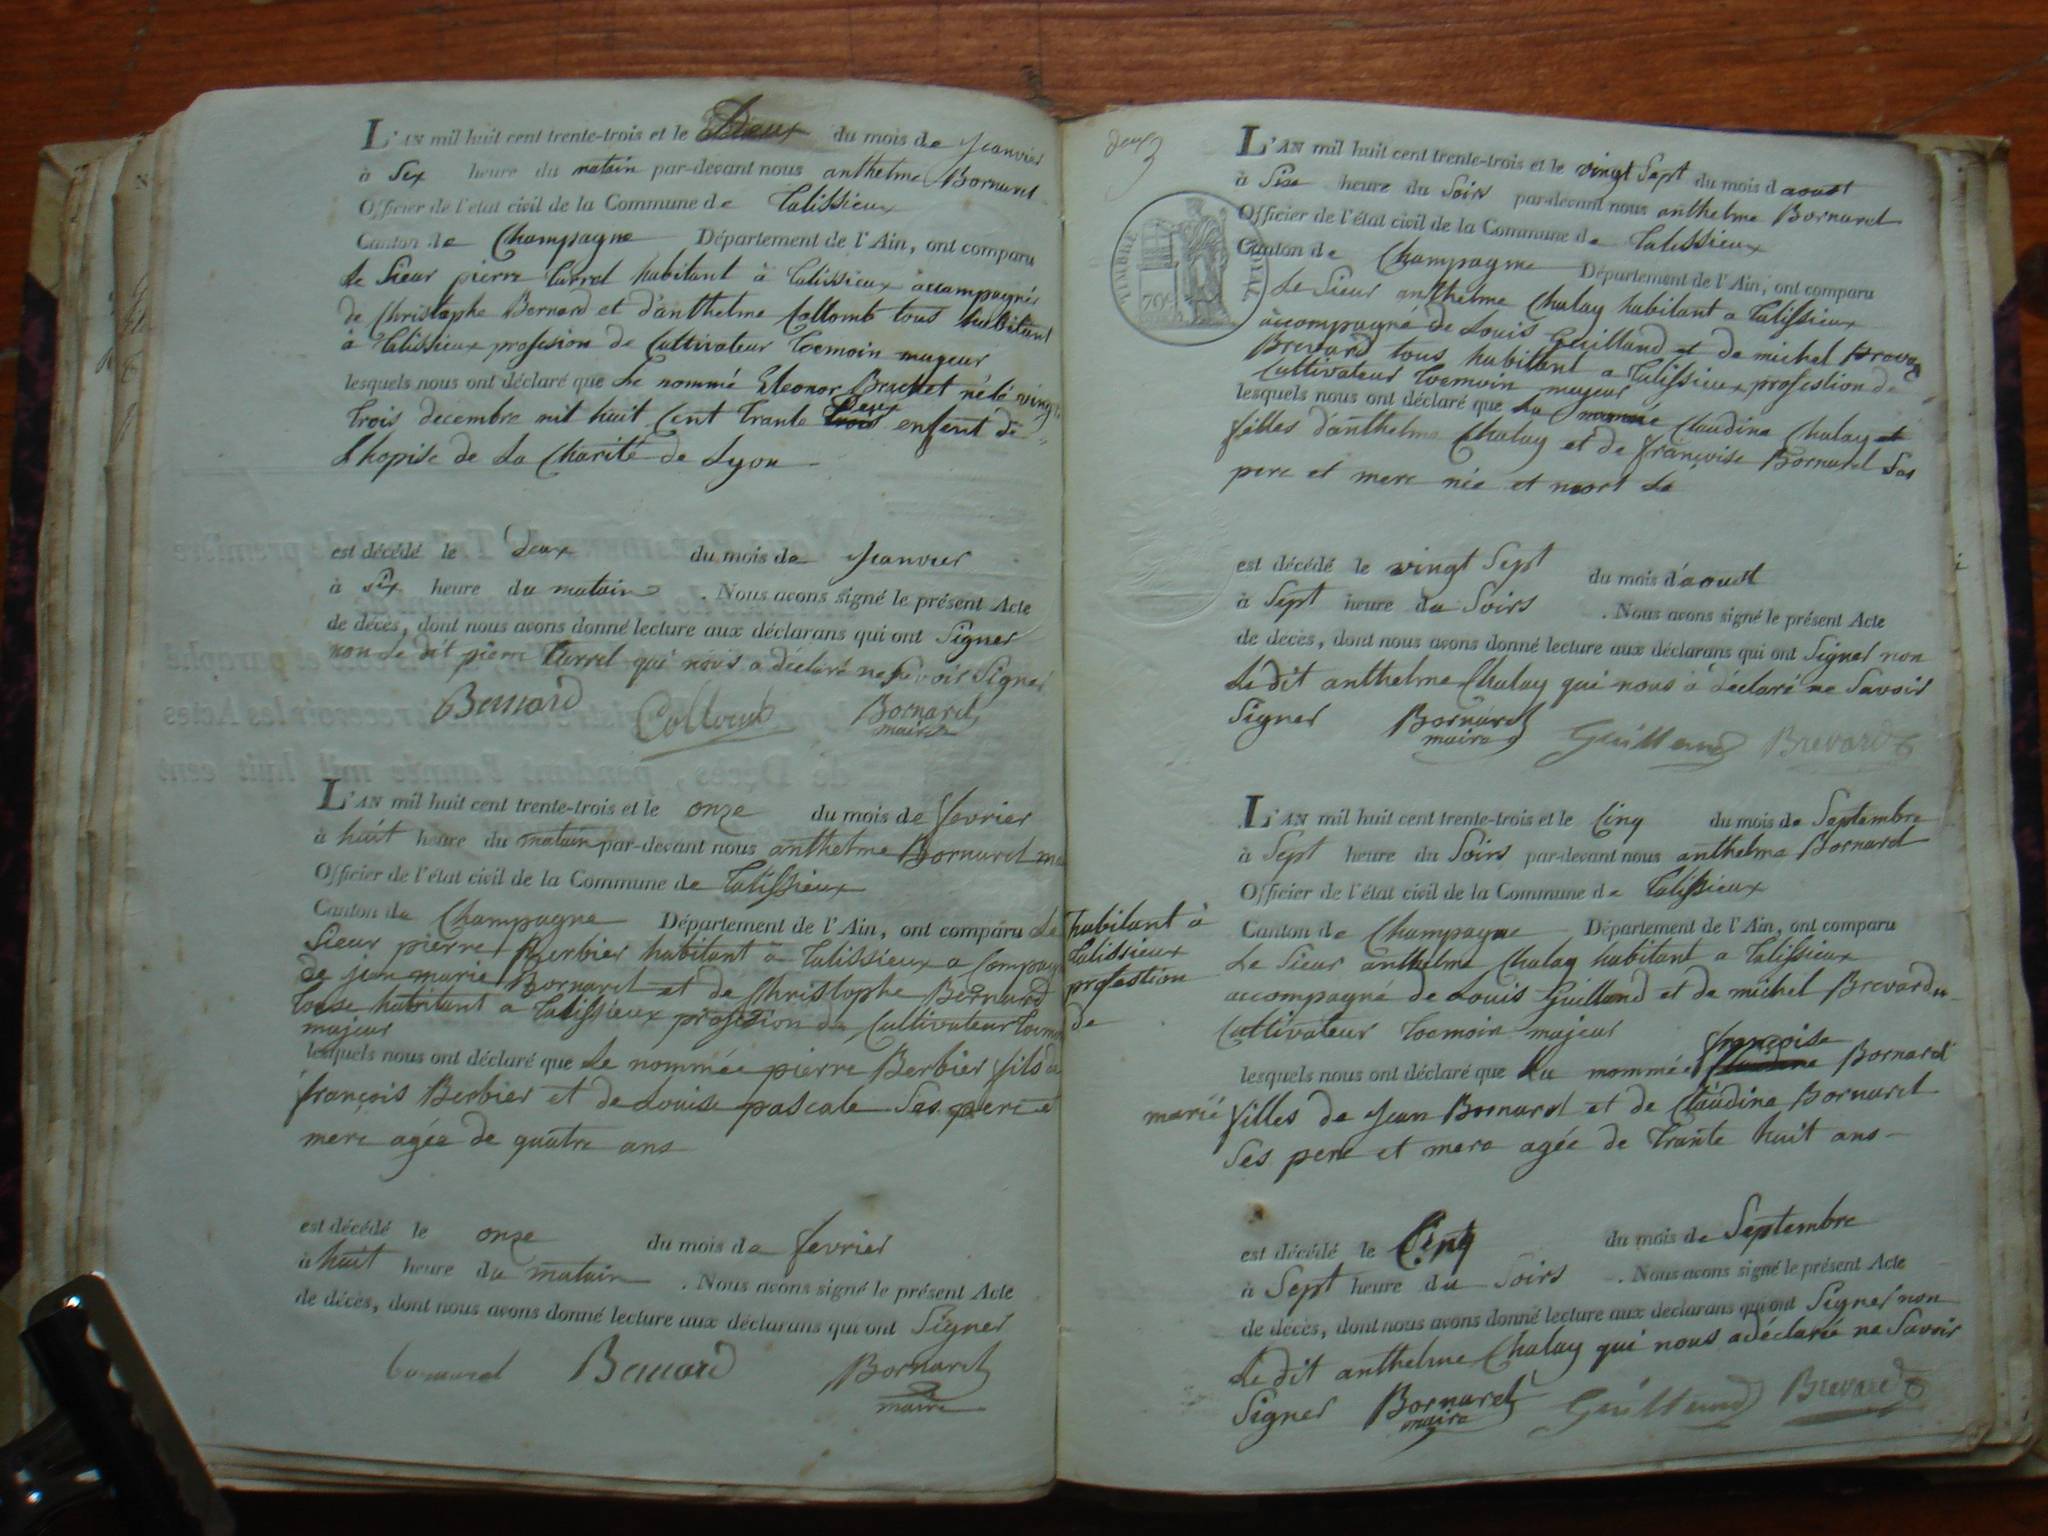 L'AN mil huit cent trente-trois et le Deux du mois de Jeanvier
à Six heure du matain par-devant nous anthelme Bornarel
Officier de l'état civil de la Commune de Talissieux
Canton de Champagne Département de l'Ain, ont comparu
Le Sieur pierre Carrel habitant à Talissieux accampagnés
de Christophe Bernard et d'anthelme Collomb tous habitant
à Talissieux profesion de Cultivateur Toemoin majeur
lesquels nous ont déclaré que Le nommé Eleonor Bruchet né le vingt
Trois decembre mil huit Cent Trante Deux enfent de
L'hopise de La Charité de Lyon
est décédé le deux du mois de Jeanvier
à six heure du matain . Nous avons signé le présent Acte
de décès, dont nous avons donné lecture aux déclarans qui ont Signer
non Le dit pierre Carrel qui nous a déclaré ne Savoir Signer
Bernard Collomb Bornarel
maire
L'AN mil huit cent trente-trois et le onze du mois de fevrier
à huit heure du matain par-devant nous anthelme Bornarel
Officier de l'état civil de la Commune de Talissieux
Canton de Champagne Département de l'Ain, ont comparu Le
Sieur pierre Berbier habitant à Talissieux a Compagné
de jean marie Bornarel et de Christophe Bernard
habitant a Talissieux profestion de Cultivateur
majeur
lesquels nous ont déclaré que Le nommée pierre Berbier fils de
françois Berbier et de Louise pascale Ses pere et
mere agée de quatre ans
est décédé le onze du mois de fevrier
à huit heure du matain . Nous avons signé le présent Acte
de décès, dont nous avons donné lecture aux déclarans qui ont Signer
bornarel Bernard Bornarel
maire
deux
TIMBRE ROYAL
70c
L'AN mil huit cent trente-trois et le vingt Sept du mois d aoust
à Six heure du Soirs par-devant nous anthelme Bornarel
Officier de l'état civil de la Commune de Talissieux
Canton de Champagne Département de l'Ain, ont comparu
Le Sieur anthelme Chalay habitant a Talissieux
accompagné de Louis Guilland et de michel
Brevard tous habittent a Talissieux profestion de
Cultivateur Toemoin majeur
lesquels nous ont déclaré que La nommé Claudine Chalay et
filles d'anthelme Chalay et de françoise Bornarel Ses
pere et mere née et mort Le
est décédé le vingt Sept du mois d'aoust
à Sept heure du Soirs . Nous avons signé le présent Acte
de décès, dont nous avons donné lecture aux déclarans qui ont Signer non
Le dit anthelme Chalay qui nous a déclaré ne Savoir
Signer Bornarel Guilland Brevard
maire
L'AN mil huit cent trente-trois et le Cinq du mois de Septembre
à Sept heure du Soirs par-devant nous anthelme Bornarel
Officier de l'état civil de la Commune de Talissieux
habitant à
Talissieux
profestion
de
Canton de Champagne Département de l'Ain, ont comparu
Le Sieur anthelme Chalay habitant a Talissieux
accompagné de Louis Guilland et de michel Brevard
Cultivateur Toemoin majeur
françoise
lesquels nous ont déclaré que La nommée Claudine Bornarel
marié filles de Jean Bornarel et de Claudine Bornarel
Ses pere et mere agée de Trante huit ans
est décédé le Cinq du mois de Septembre
à Sept heure du Soirs . Nous avons signé le présent Acte
de décès, dont nous avons donné lecture aux déclarans qui ont Signer non
Le dit anthelme Chalay qui nous a déclaré ne Savoir
Signer Bornarel Guilland Brevard
maire